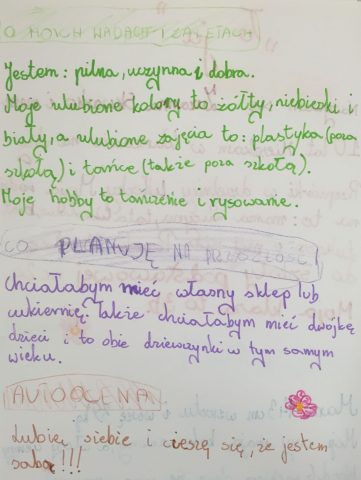 O MOICH WADACH I ZALETACH
Jestem: pilna, uczynna i dobra.
Moje ulubione kolory to żółty, niebieski i
biały, a ulubione zajęcia to: plastyka (poza
szkołą) i tańce (także poza szkołą).
Moje hobby to tańczenie i rysowanie.
CO PLANUJĘ NA PRZYSZŁOŚĆ!
Chciałabym mieć własny sklep lub
cukiernię. Także chciałabym mieć dwójkę
dzieci i to obie dziewczynki w tym samym
wieku.
AUTOOCENA
Lubię siebie i cieszę się, że jestem
sobą!!!